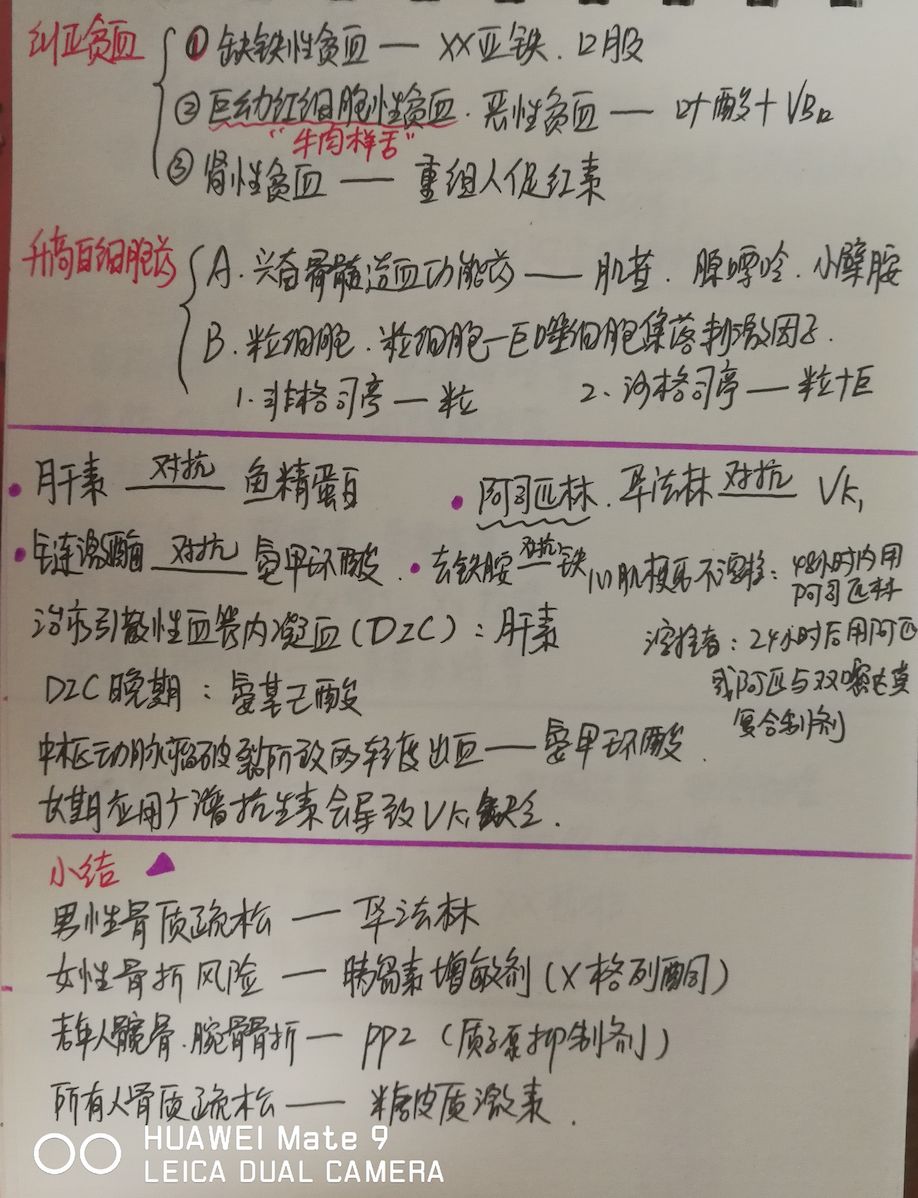 纠正贫血
① 缺铁性贫血 — XX亚铁、口服
② 巨幼红细胞性贫血、恶性贫血 — 叶酸+VB12
"牛肉样舌"
③ 肾性贫血 — 重组人促红素
升高白细胞药
A. 兴奋骨髓造血功能药 — 肌苷、腺嘌呤、小檗胺
B. 粒细胞、粒细胞—巨噬细胞集落刺激因子.
1. 非格司亭 — 粒 2. 沙格司亭 — 粒+巨
• 肝素 对抗 鱼精蛋白 • 阿司匹林、华法林 对抗 VK1
• 链激酶 对抗 氨甲环酸 • 去铁胺 对抗 铁
心肌梗死不溶栓: 48小时内用
阿司匹林
溶栓者: 24小时后用阿匹
或阿匹与双嘧达莫
复合制剂
治疗引散性血管内凝血(DIC): 肝素
DIC晚期: 氨基己酸
中枢动脉瘤破裂所致的轻度出血 — 氨甲环酸.
长期应用广谱抗生素会导致VK1缺乏.
小结 ▲
男性骨质疏松 — 华法林
女性骨折风险 — 胰岛素增敏剂(X格列酮)
老年人髋骨、腕骨骨折 — PPI (质子泵抑制剂)
所有人骨质疏松 — 糖皮质激素.
HUAWEI Mate 9
LEICA DUAL CAMERA